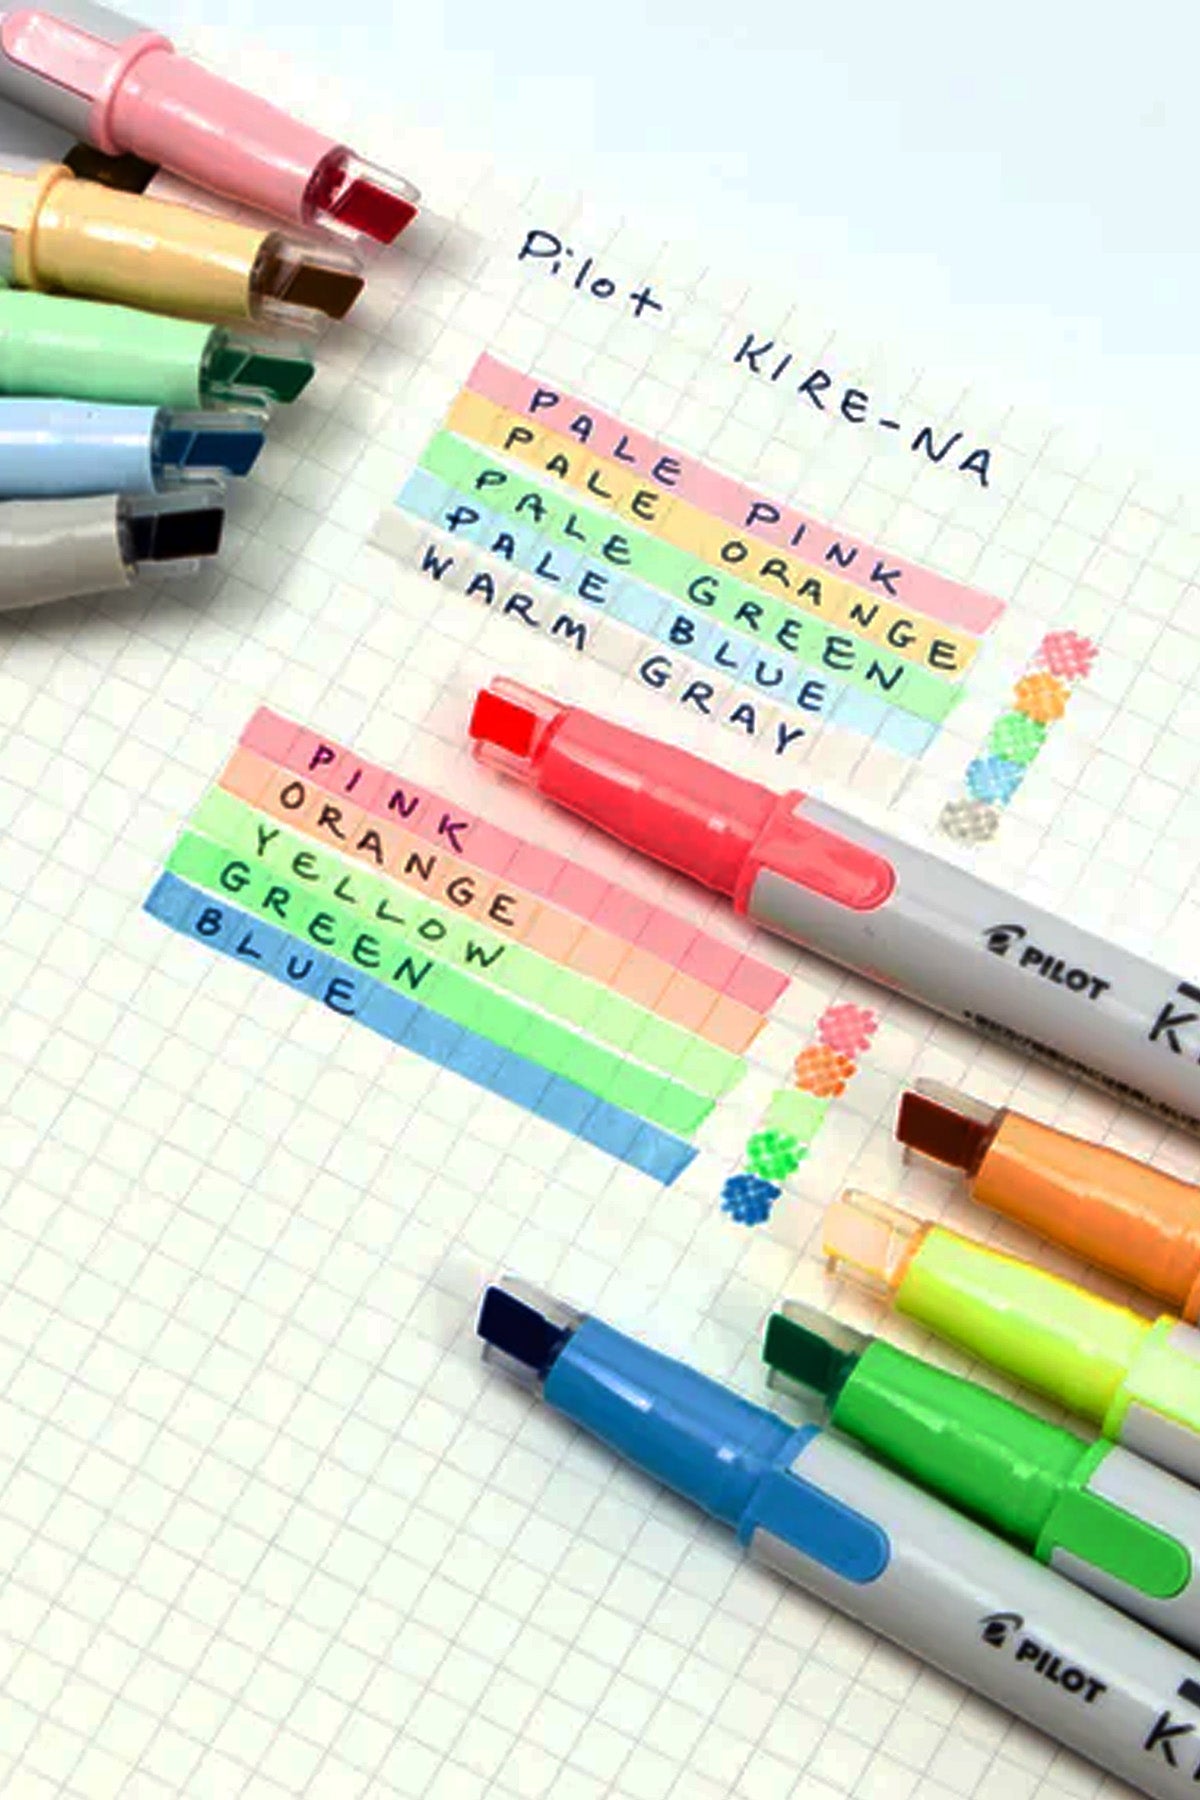 Pilot KIRE-NA
PALE PINK
PALE ORANGE
PALE GREEN
PALE BLUE
WARM GRAY
PINK
ORANGE
YELLOW
GREEN
BLUE
PILOT
PILOT